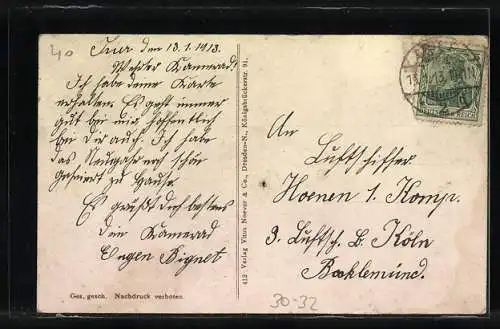 40
Trier den 13.1.1913.
Werter Kamerad!
Ich habe deine Karte
erhalten. Es geht immer
gut bei mir hoffentlich
bei dir auch. Ich habe
das Neujahr noch schön
gefeiert zu Hause.
Es grüßt dich bestens
dein Kamerad
Eugen Bignet
Ges. gesch. Nachdruck verboten.
412 Verlag Vhnn Noever & Co., Dresden-N., Königsbrückerstr. 91.
DEUTSCHES REICH
An
Luftschiffer
Hoenen 1. Komp.
3. Luftsch. B. Köln
Bocklemünd.
30-32